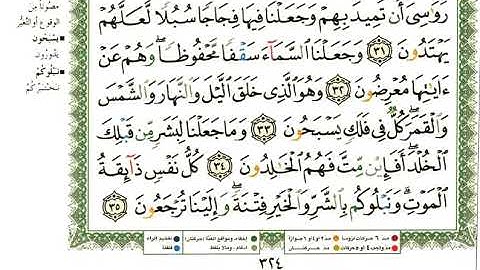 رَوَاسِيَ أَن تَمِيدَ بِهِمْ وَجَعَلْنَا فِيهَا فِجَاجًا سُبُلًا لَّعَلَّهُمْ
يَهْتَدُونَ ٣١ وَجَعَلْنَا السَّمَاءَ سَقْفًا مَّحْفُوظًا وَهُمْ عَنْ
ءَايَاتِهَا مُعْرِضُونَ ٣٢ وَهُوَ الَّذِي خَلَقَ الَّيْلَ وَالنَّهَارَ وَالشَّمْسَ
وَالْقَمَرَ كُلٌّ فِي فَلَكٍ يَسْبَحُونَ ٣٣ وَمَا جَعَلْنَا لِبَشَرٍ مِّن قَبْلِكَ
الْخُلْدَ أَفَإِيْن مِّتَّ فَهُمُ الْخَالِدُونَ ٣٤ كُلُّ نَفْسٍ ذَائِقَةُ
الْمَوْتِ وَنَبْلُوكُم بِالشَّرِّ وَالْخَيْرِ فِتْنَةً وَإِلَيْنَا تُرْجَعُونَ ٣٥
مصوناً من
الوقوع أو التغيّر
يَسْبَحُونَ
يدورون
نَبْلُوكُم
نختبركم
٣٢٤